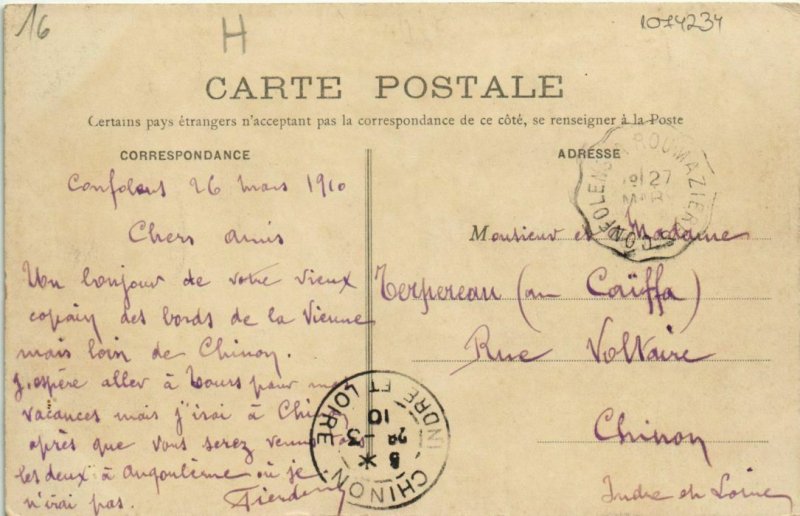 16
H
1074234
CARTE POSTALE
Certains pays étrangers n'acceptant pas la correspondance de ce côté, se renseigner à la Poste
CORRESPONDANCE
Confolens 26 mars 1910
Chers amis
Un bonjour de votre vieux
copain des bords de la Vienne
mais loin de Chinon.
J'espère aller à Tours pour mes
vacances mais j'irai à Chinon
après que vous serez venus
les deux à Angoulême où je
n'irai pas.
ADRESSE
CONFOLENS A ROUMAZIERES
27
MAR
Monsieur et Madame
Terpereau (au Caïffa)
Rue Voltaire
Chinon
Indre et Loire
CHINON
INDRE ET LOIRE
8 *
29 - 3
10